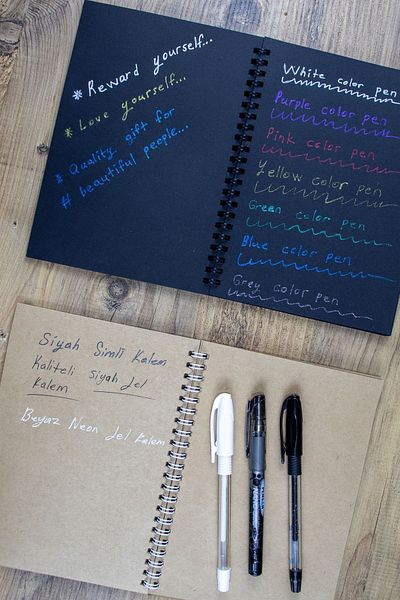 * Reward yourself...
* Love yourself...
* Quality gift for
# beautiful people...
White color pen
Purple color pen
Pink color pen
Yellow color pen
Green color pen
Blue color pen
Grey color pen
Siyah Simli Kalem
Kaliteli siyah Jel
Kalem
Beyaz Neon Jel Kalem